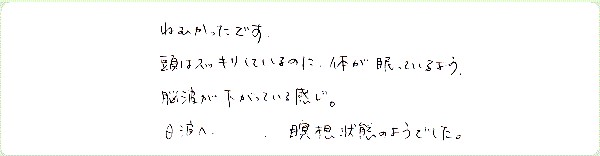 ねむかったです.
頭はスッキリしているのに、体が眠っているよう.
脳波が下がっている感じ。
θ波へ. . 瞑想状態のようでした。